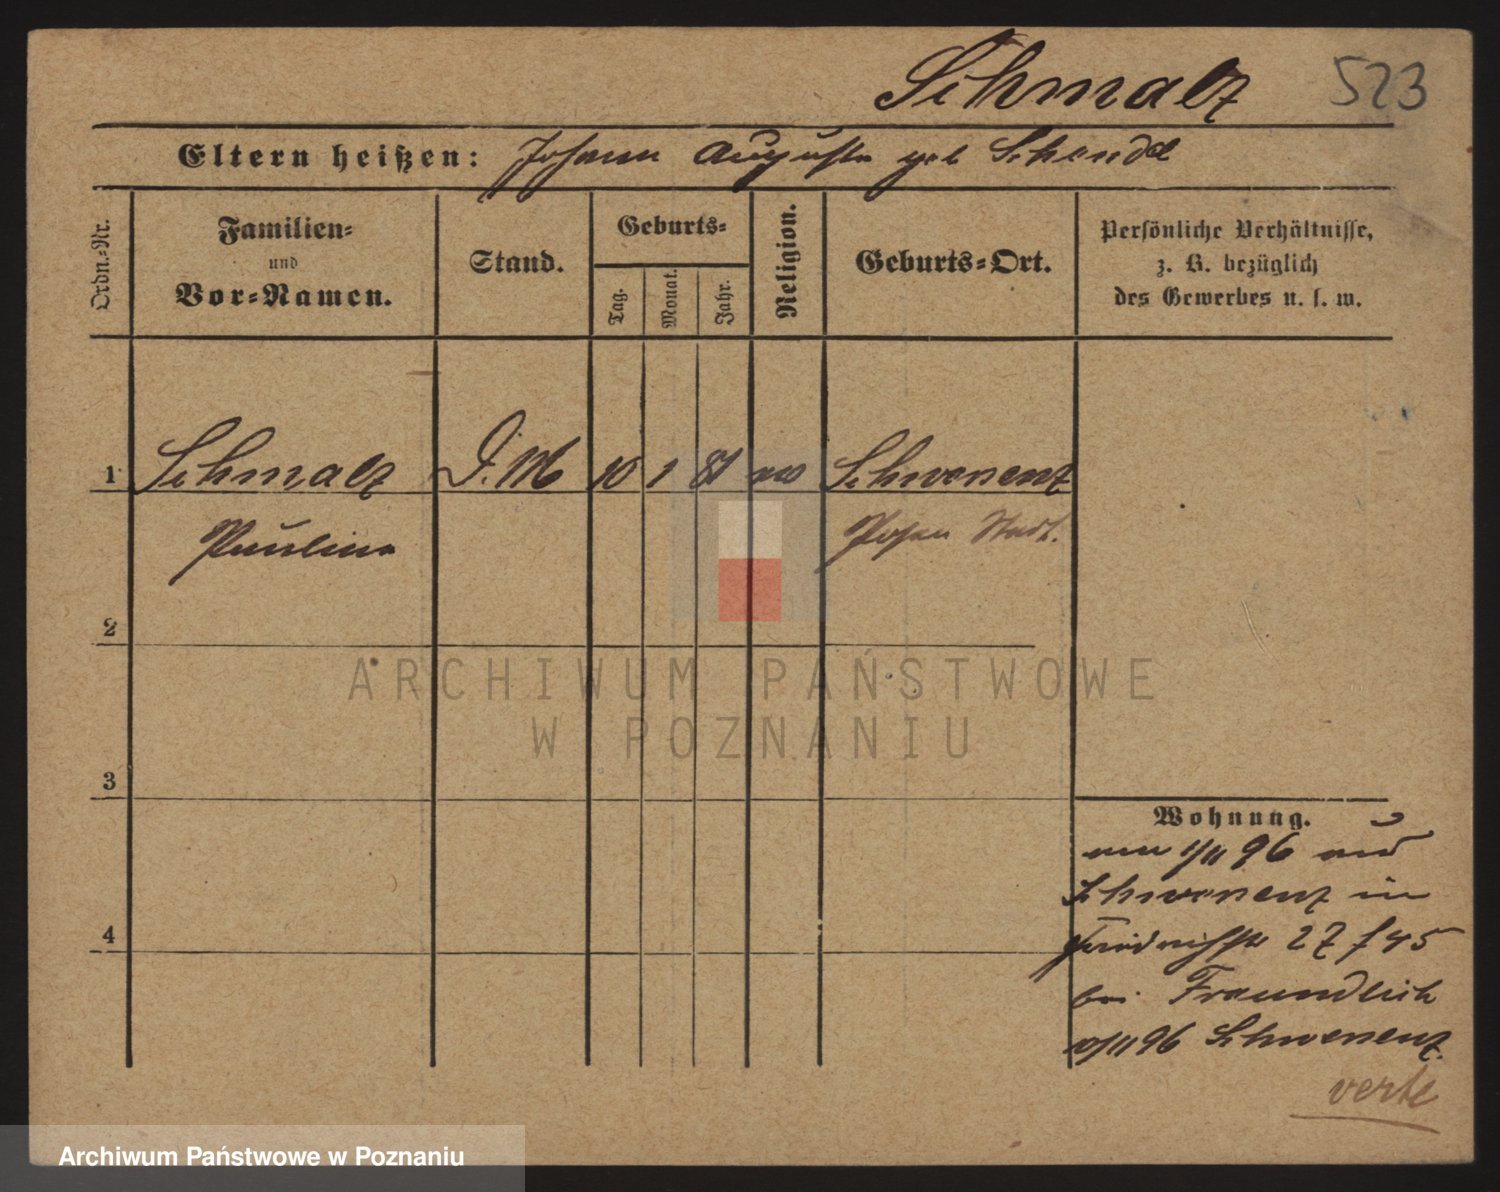 Schmalz 523
Eltern heißen: Johann Auguste geb Schendel
Ordn.-Nr.
Familien-
und
Vor-Namen.
Stand.
Geburts-
Tag.
Monat.
Jahr.
Religion.
Geburts-Ort.
Persönliche Verhältnisse,
z. B. bezüglich
des Gewerbes u. s. w.
1 Schmalz D. M 10 1 81 Schwersenz
Pauline Posen Stadt.
2
3
4
Wohnung.
1/11 96 aus
Schwersenz in
Friedrichstr 27
bei Freundlich
11 96 Schwersenz.
verte
ARCHIWUM PAŃSTWOWE
W POZNANIU
Archiwum Państwowe w Poznaniu